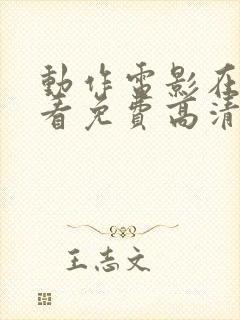 動作雷影在
看免費高清
王志文